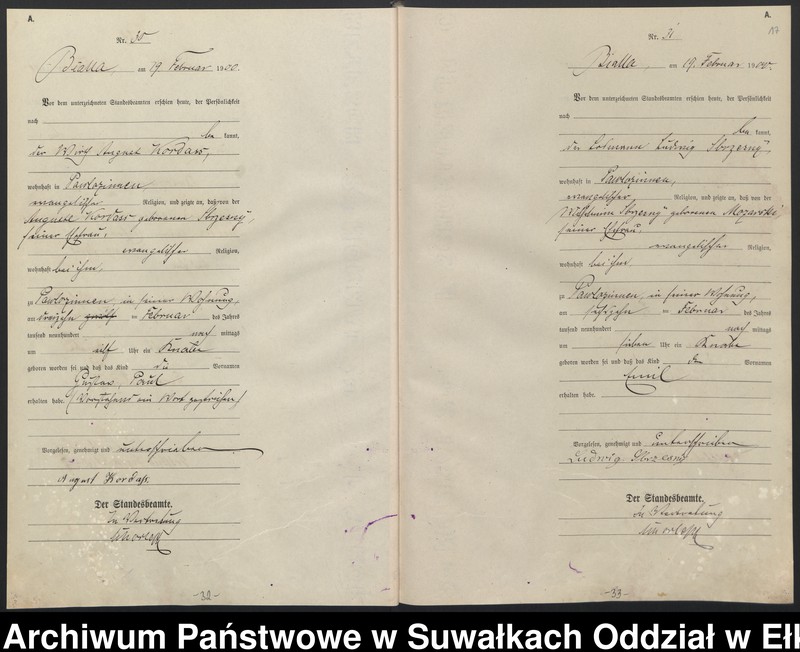 A.
Nr. 30
Bialla, am 19. Februar 1900.
Vor dem unterzeichneten Standesbeamten erschien heute, der Persönlichkeit
nach
be kannt,
der Wirth August Kordass,
wohnhaft in Pawlozinnen
evangelischer Religion, und zeigte an, daß von der
Auguste Kordass geborenen Sbrzesny,
seiner Ehefrau,
evangelischer Religion,
wohnhaft bei ihm,
zu Pawlozinnen, in seiner Wohnung,
am dreizehn ten Februar des Jahres
tausend neunhundert nach mittags
um Uhr ein Knabe
geboren worden sei und daß das Kind die Vornamen
Gustav Paul
erhalten habe. (Vorstehend ein Wort gestrichen)
Vorgelesen, genehmigt und unterschrieben
August Kordass.
Der Standesbeamte.
In Vertretung
A.
117
Nr. 31
Bialla, am 19. Februar 1900.
Vor dem unterzeichneten Standesbeamten erschien heute, der Persönlichkeit
nach
be kannt,
der Losmann Ludwig Sbrzesny,
wohnhaft in Pawlozinnen,
evangelischer Religion, und zeigte an, daß von der
Wilhelmine Sbrzesny geborenen Mozarski
seiner Ehefrau,
evangelischer Religion,
wohnhaft bei ihm
zu Pawlozinnen, in seiner Wohnung,
am sechszehn ten Februar des Jahres
tausend neunhundert nach mittags
um sieben Uhr ein Knabe
geboren worden sei und daß das Kind den Vornamen
Emil
erhalten habe.
Vorgelesen, genehmigt und unterschrieben
Ludwig Sbrzesny
Der Standesbeamte.
In Vertretung
-32-
-33-
Archiwum Państwowe w Suwałkach Oddział w Ełk